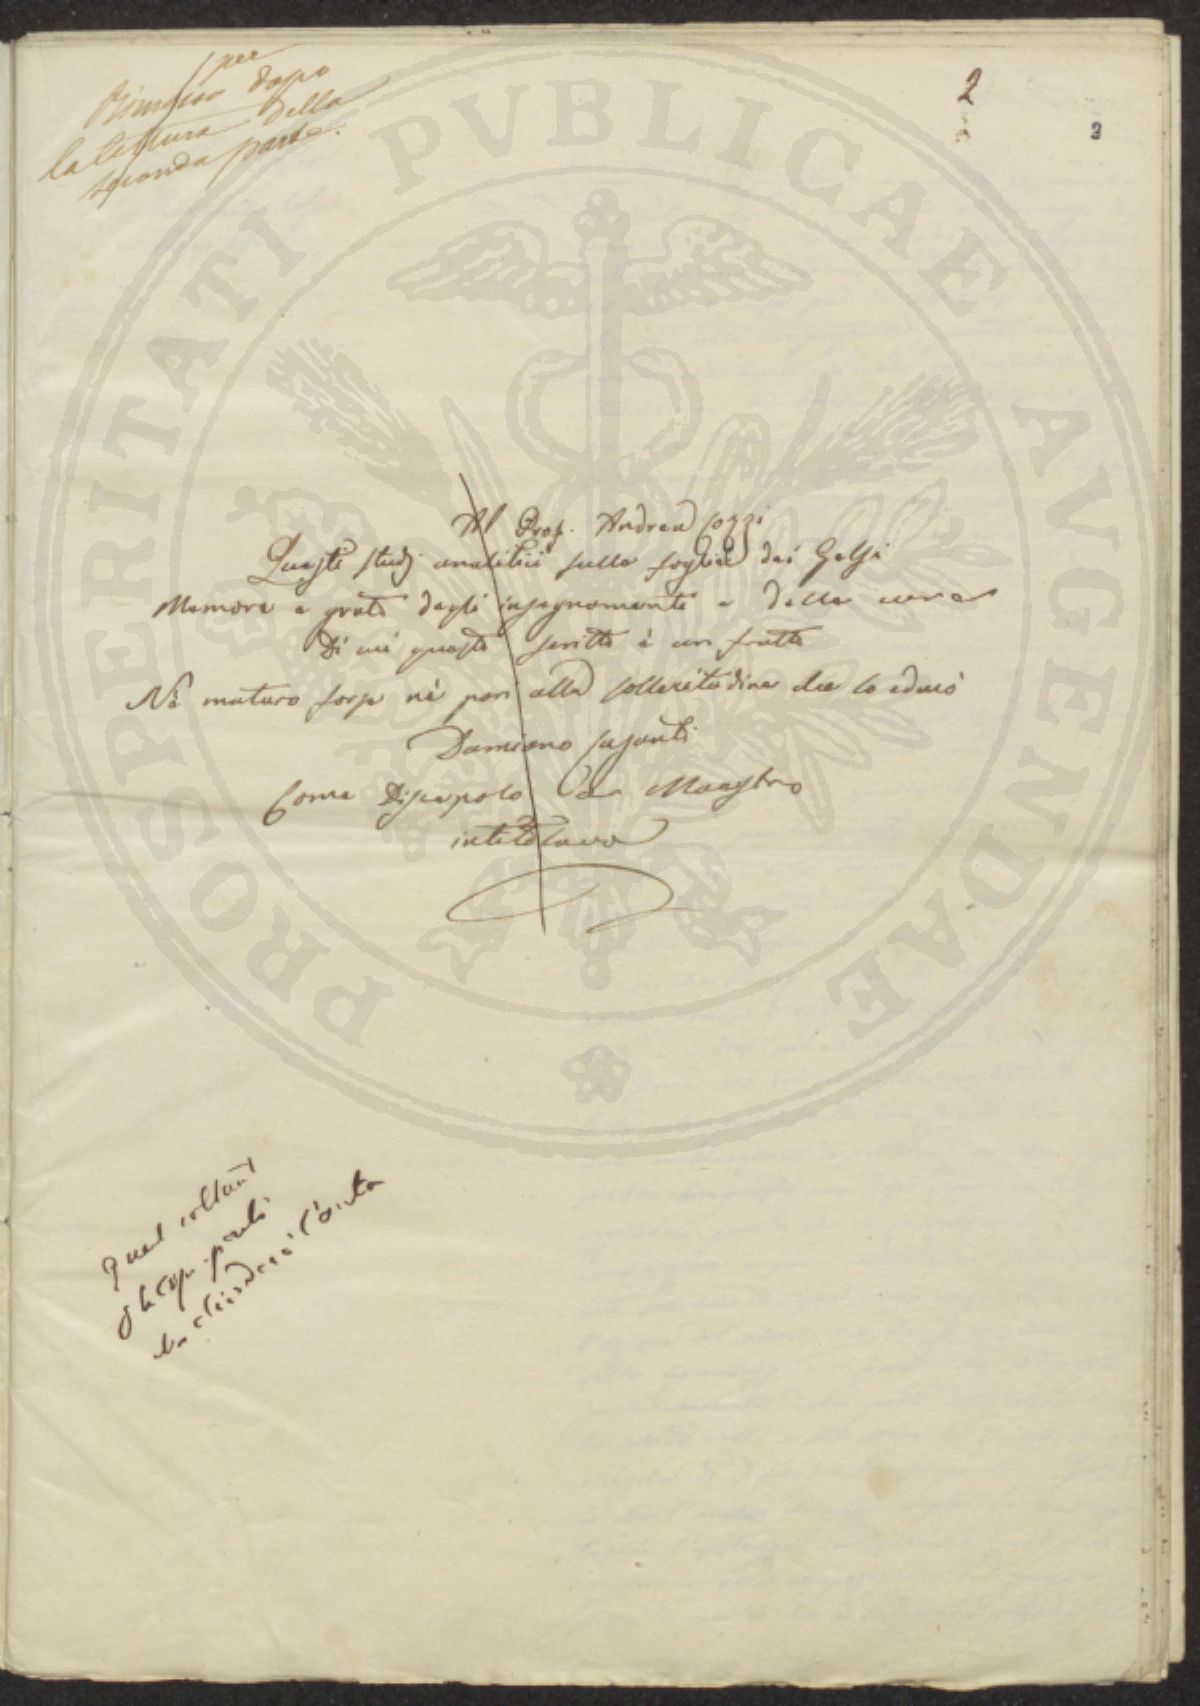 per
Rimesso dopo
la lettura della
seconda parte.
2
2
Al Prof. Andrea Cozzi
Questi studj analitici sulla foglia dei Gelsi
Memore e grato degli insegnamenti e della cura
Di cui questo scritto è un frutto
Nè maturo forse nè pari alla sollecitudine che lo educò
Damiano Casanti
Come Discepolo a Maestro
intitolava
PROSPERITATI PVBLICAE AVGENDAE